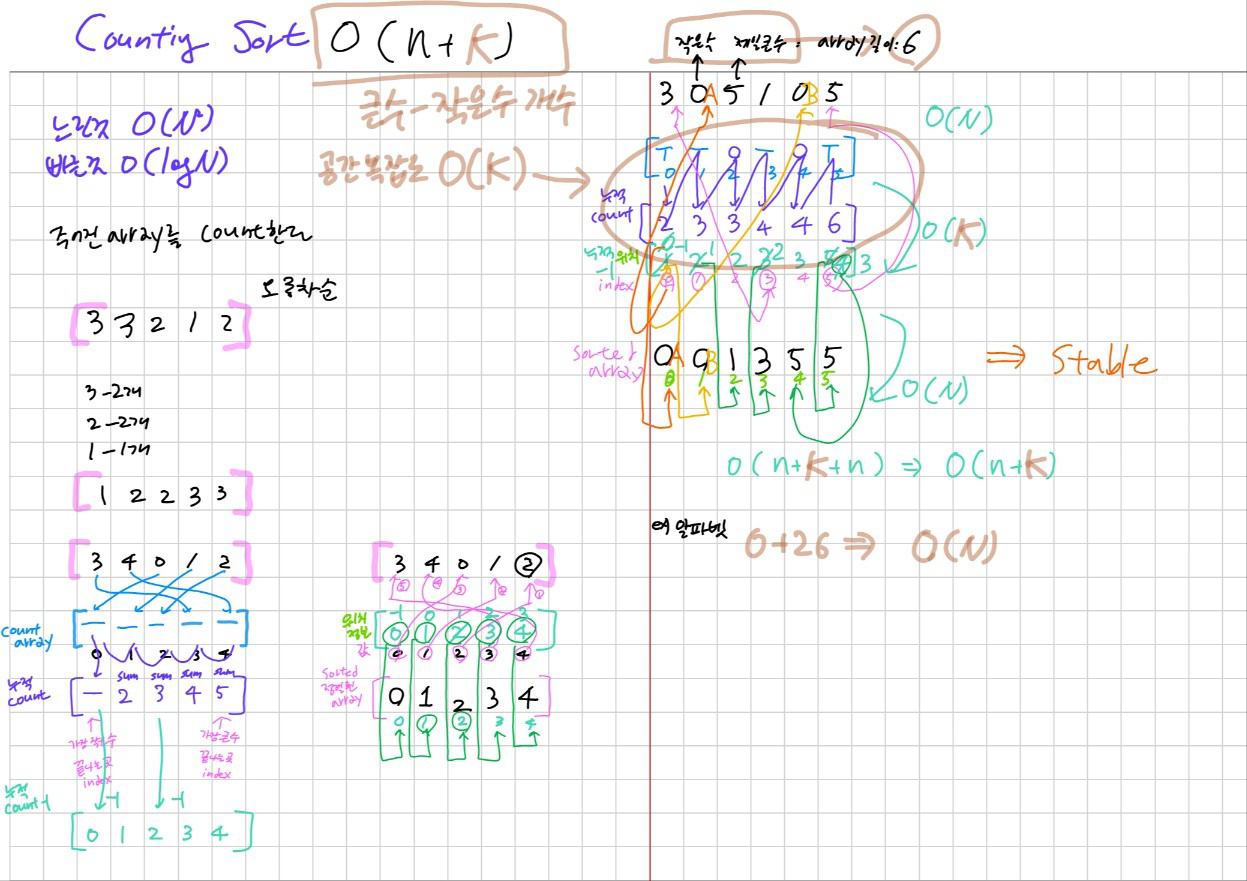 Countiy Sort O(n+K)
큰수-작은수 개수
느린것 O(N²)
빠른것 O(logN)
공간복잡도 O(K)
주어진 array를 count한다
오름차순
[3 3 2 1 2]
3-2개
2-2개
1-1개
[1 2 2 3 3]
[3 4 0 1 2]
count array
0 1 2 3 4
sum sum sum sum
누적 count
[一 2 3 4 5]
가장 작은수 끝나는곳 index
가장 큰수 끝나는곳 index
-1 -1
누적 count-1
[0 1 2 3 4]
[3 4 0 1 2]
위치 정보
-1 0 1 2 3
[0 1 2 3 4]
값
0 1 2 3 4
Sorted 정렬된 array
[0 1 2 3 4]
0 1 2 3 4
작은수 제일큰수 : array길이:6
3 0A 5 1 0B 5
O(N)
0 1 2 3 4 5
누적 count
[2 3 3 4 4 6]
O(K)
누적 위치 -1
index
0 1 2 3 4 5
Sorted array
0A 0B 1 3 5 5
0 1 2 3 4 5
O(N)
⇒ Stable
O(n+K+n) ⇒ O(n+K)
예 알파벳 0+26 ⇒ O(N)